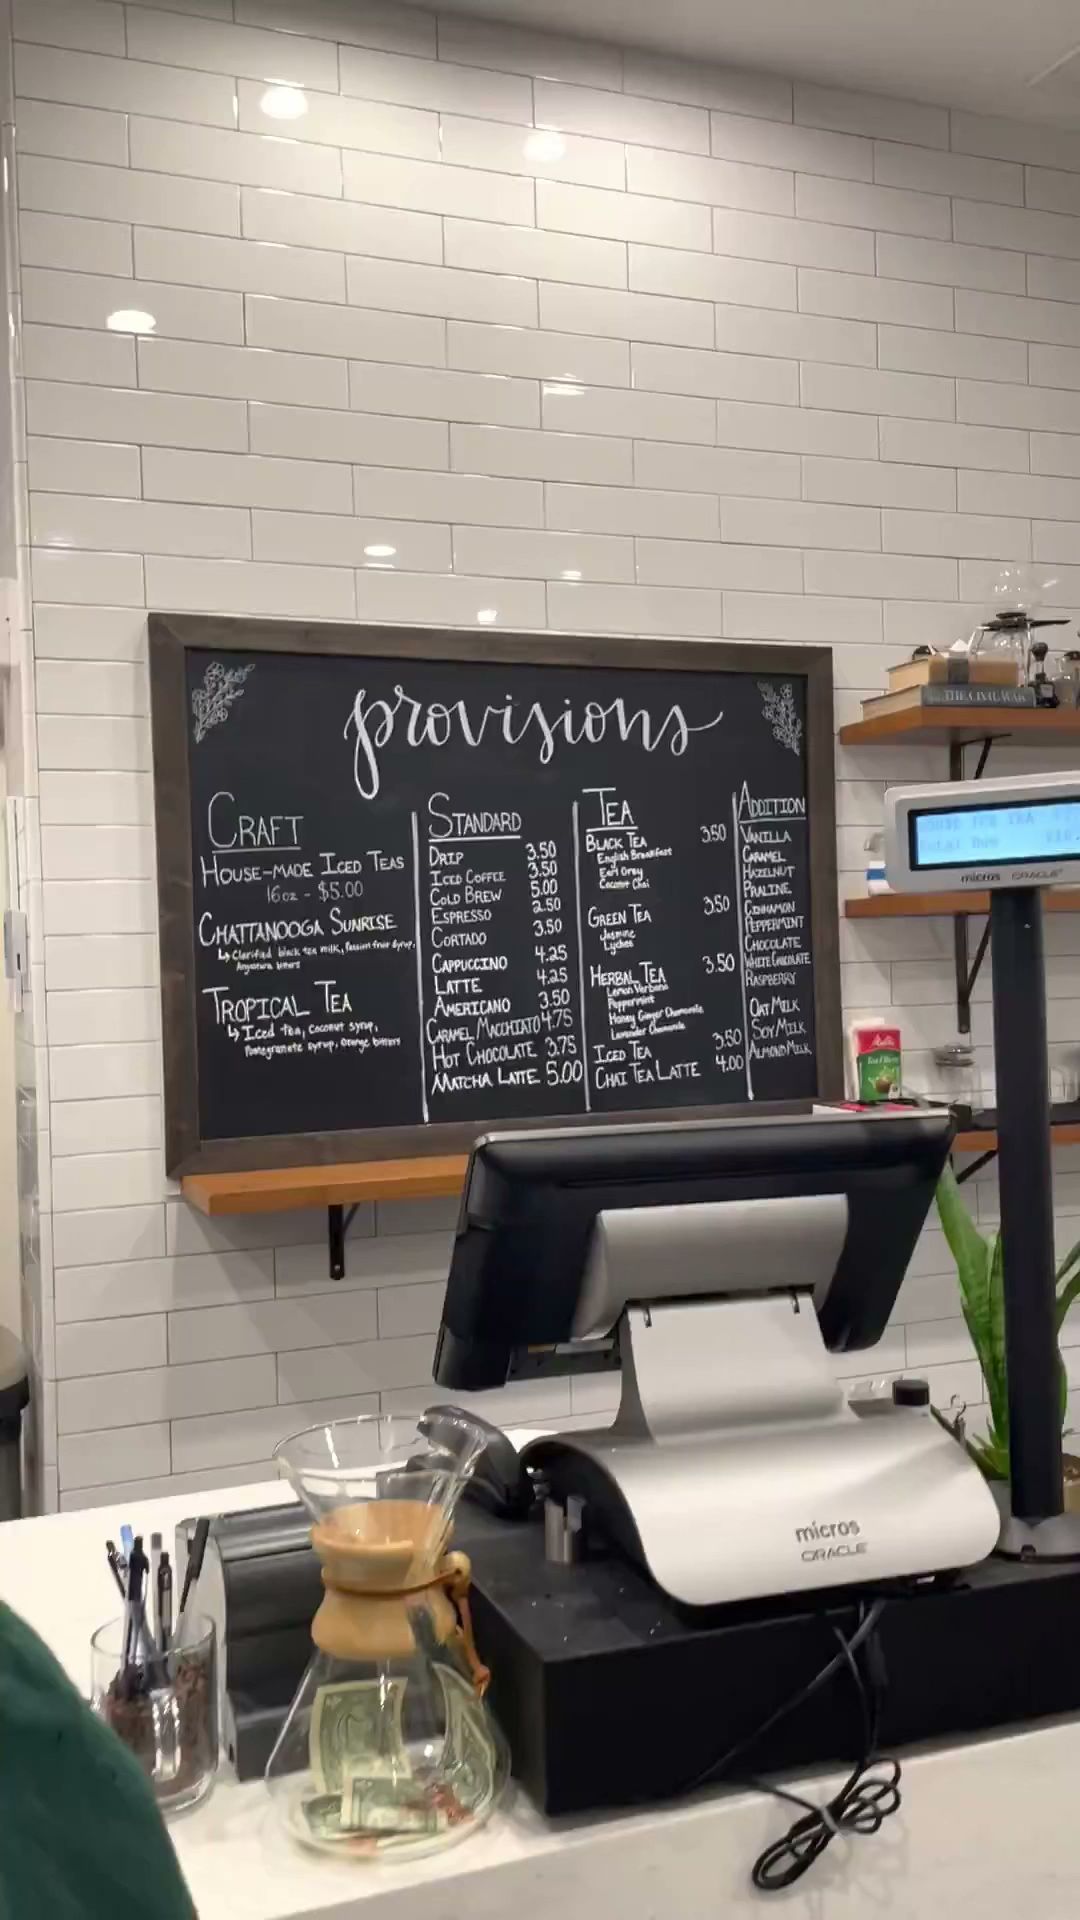 provisions
CRAFT
HOUSE-MADE ICED TEAS
16oz - $5.00
CHATTANOOGA SUNRISE
↳ Clarified black tea milk, Passion fruit syrup,
Angostura bitters
TROPICAL TEA
↳ Iced tea, coconut syrup,
Pomegranate syrup, orange bitters
STANDARD
DRIP 3.50
ICED COFFEE 3.50
COLD BREW 5.00
ESPRESSO 2.50
CORTADO 3.50
CAPPUCCINO 4.25
LATTE 4.25
AMERICANO 3.50
CARAMEL MACCHIATO 4.75
HOT CHOCOLATE 3.75
MATCHA LATTE 5.00
TEA
BLACK TEA 3.50
English Breakfast
Earl Grey
Coconut Chai
GREEN TEA 3.50
Jasmine
Lychee
HERBAL TEA 3.50
Lemon Verbena
Peppermint
Honey Ginger Chamomile
Lavender Chamomile
ICED TEA 3.50
CHAI TEA LATTE 4.00
ADDITION
VANILLA
CARAMEL
HAZELNUT
PRALINE
CINNAMON
PEPPERMINT
CHOCOLATE
WHITE CHOCOLATE
RASPBERRY
OAT MILK
SOY MILK
ALMOND MILK
THE CIVIL WAR
Total Due
micros ORACLE
Melitta
micros
ORACLE